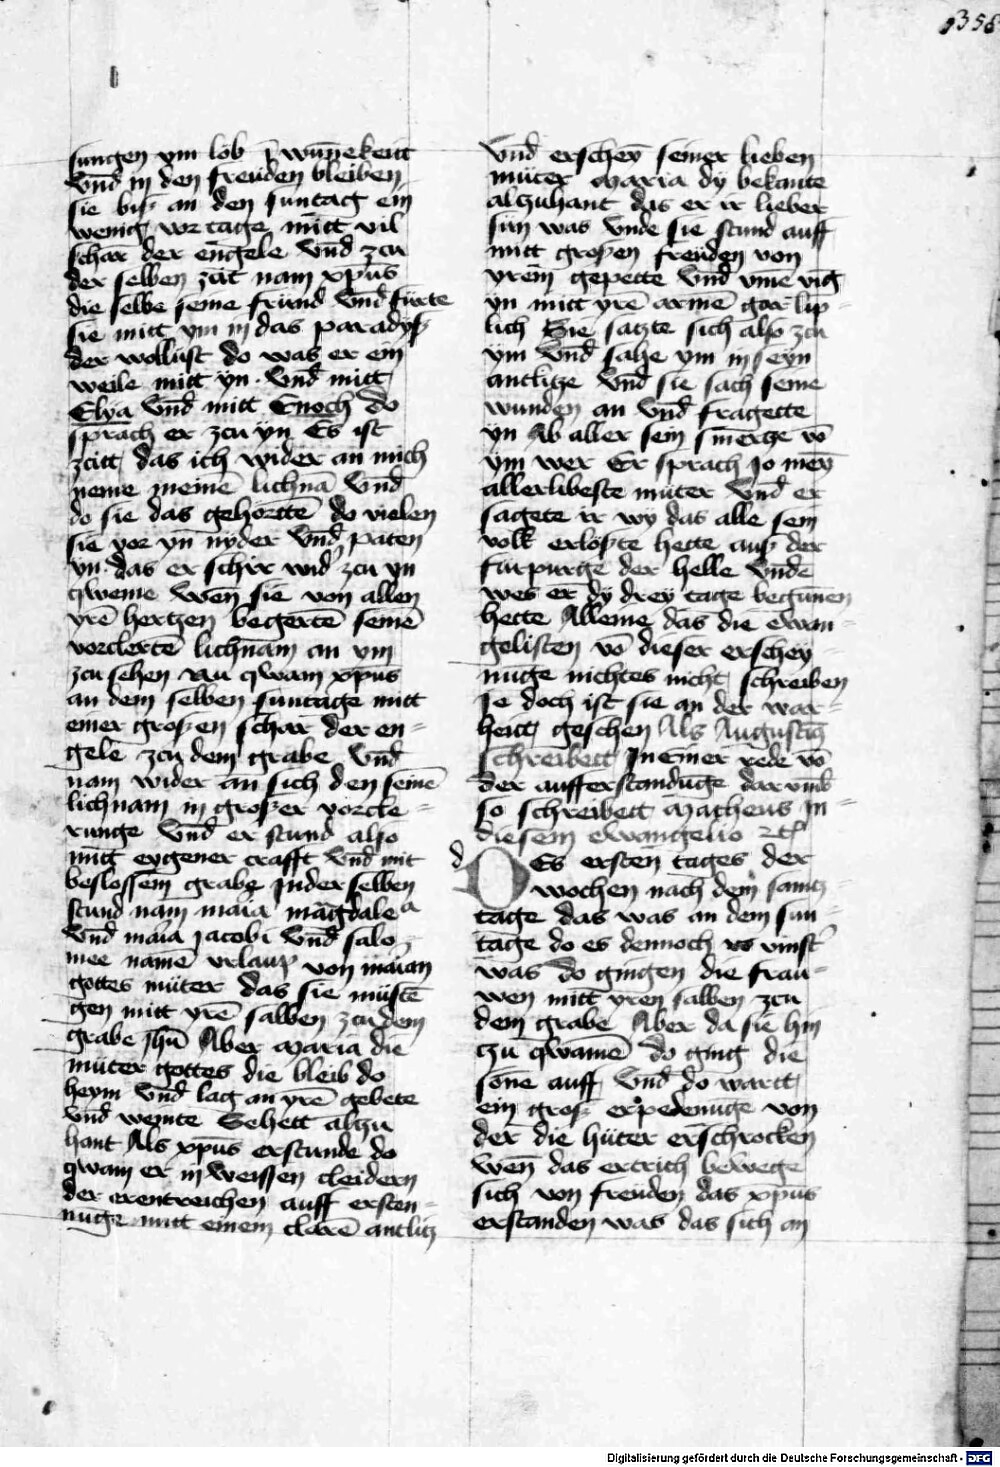 358
sungen ym lob ỹ wūnekeitt
vnd in den freüden bleiben
sie biß an den suntag ein
wenig vor tage mitt vil
schar der engele vnd zcu
der selben züt nam xp̄us
die selbe seine fründ vnd fürte
sie mitt ym in das paradyß
der wollust do was er ein
weile mitt ÿn · vnd mitt
Elya vnd mitt Enoch do
sprach er zcu yn Es ist
zcitt das ich wider an mich
neme meinē lichnā vnd
do sie das gehorttē do vielen
sie vor yn nyder vnd paten
yn das er schir wid' zcu yn
qweme wen sie von allen
yrē hertzen begertē seinē
vorclertē lichnam an ym
zcu sehen Nu qwam xp̄us
an dem selben suntage mitt
einer großen schar der en=
gele zcu dem grabe vnd
nam wider an sich den seinē
lichnam in großer vorcle=
runge vnd er stund also
mitt eygener crafft vnd mit
beslossem grabe In der selben
stund nam maīa magdalea
vnd maīa jacobi vnd salo
mee namē vrlaup von maīan
gottes müter das sie müstē
gen mitt yrē salben zcu dem
grabe jhū Aber Maria die
müter gottes die bleib do
heym vnd lag an yrē gebete
vnd weinte Sehett alczu
hant Als xp̄us erstunde do
qwam er in weissen cleidern
der erentreichen auff ersten=
nūge mitt einem clarē antlitz
vnd erschey̅ seiner lieben
müter Maria dy bekante
alczuhant das er ir lieber
sün was vnde sie stund auff
mitt großen freüden von
yrem gepette vnd vme vig
yn mitt yrē armē gar lip=
lich Sie satzte sich also zcu
ÿm vnd sahe ym in seyn
antlitze vnd sie sach seine
wunden an vnd fragette
yn Ab aller sein smertze vō
ÿm wer Er sprach Jo mey̅
allerlibeste müter vnd er
sagete ir wy das alle sein
volk erlößte hette auß der
fürpurge der helle vnde
wes er dy drey tage begunnen
hette Alleine das die ewan=
gelisten vō dieser erschey=
nūge nichtes nicht schreiben
Je doch ist sie an der war=
heitt geschen Als Augustin9
schreibett In Einer rede vō
der aufferstandūge dar vmb
so schreibett Matheus In
diesem ewangelio ꝛc
d DEs ersten tages der
wochen nach dem samtz=
tage das was an dem sun=
tage do es dennoch vinst'
was do gingen die frau=
wen mitt yren salben zcu
dem grabe Aber da sie hin
tzu qwamē do ging die
sōne auff vnd do wartt
ein groß erpedenūge von
der die hüter erschrocken
wen das ertrich bewege
sich von freüden das xp̄us
erstanden was das sich an
Digitalisierung gefördert durch die Deutsche Forschungsgemeinschaft - DFG